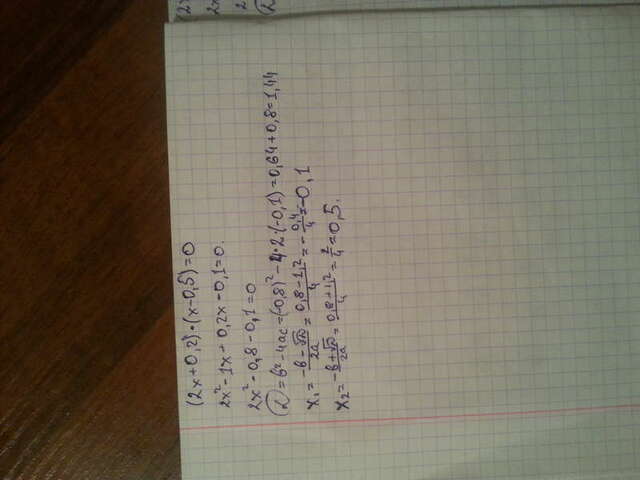 (2x+0,2)·(x-0,5)=0
2x²-1x+0,2x-0,1=0.
2x²-0,8-0,1=0
D=b²-4ac=(-0,8)²-4·2·(-0,1)=0,64+0,8=1,44
x₁=(-b-√D)/2a=(0,8-1,2)/4=-0,4/4=-0,1
x₂=(-b+√D)/2a=(0,8+1,2)/4=2/4=0,5.